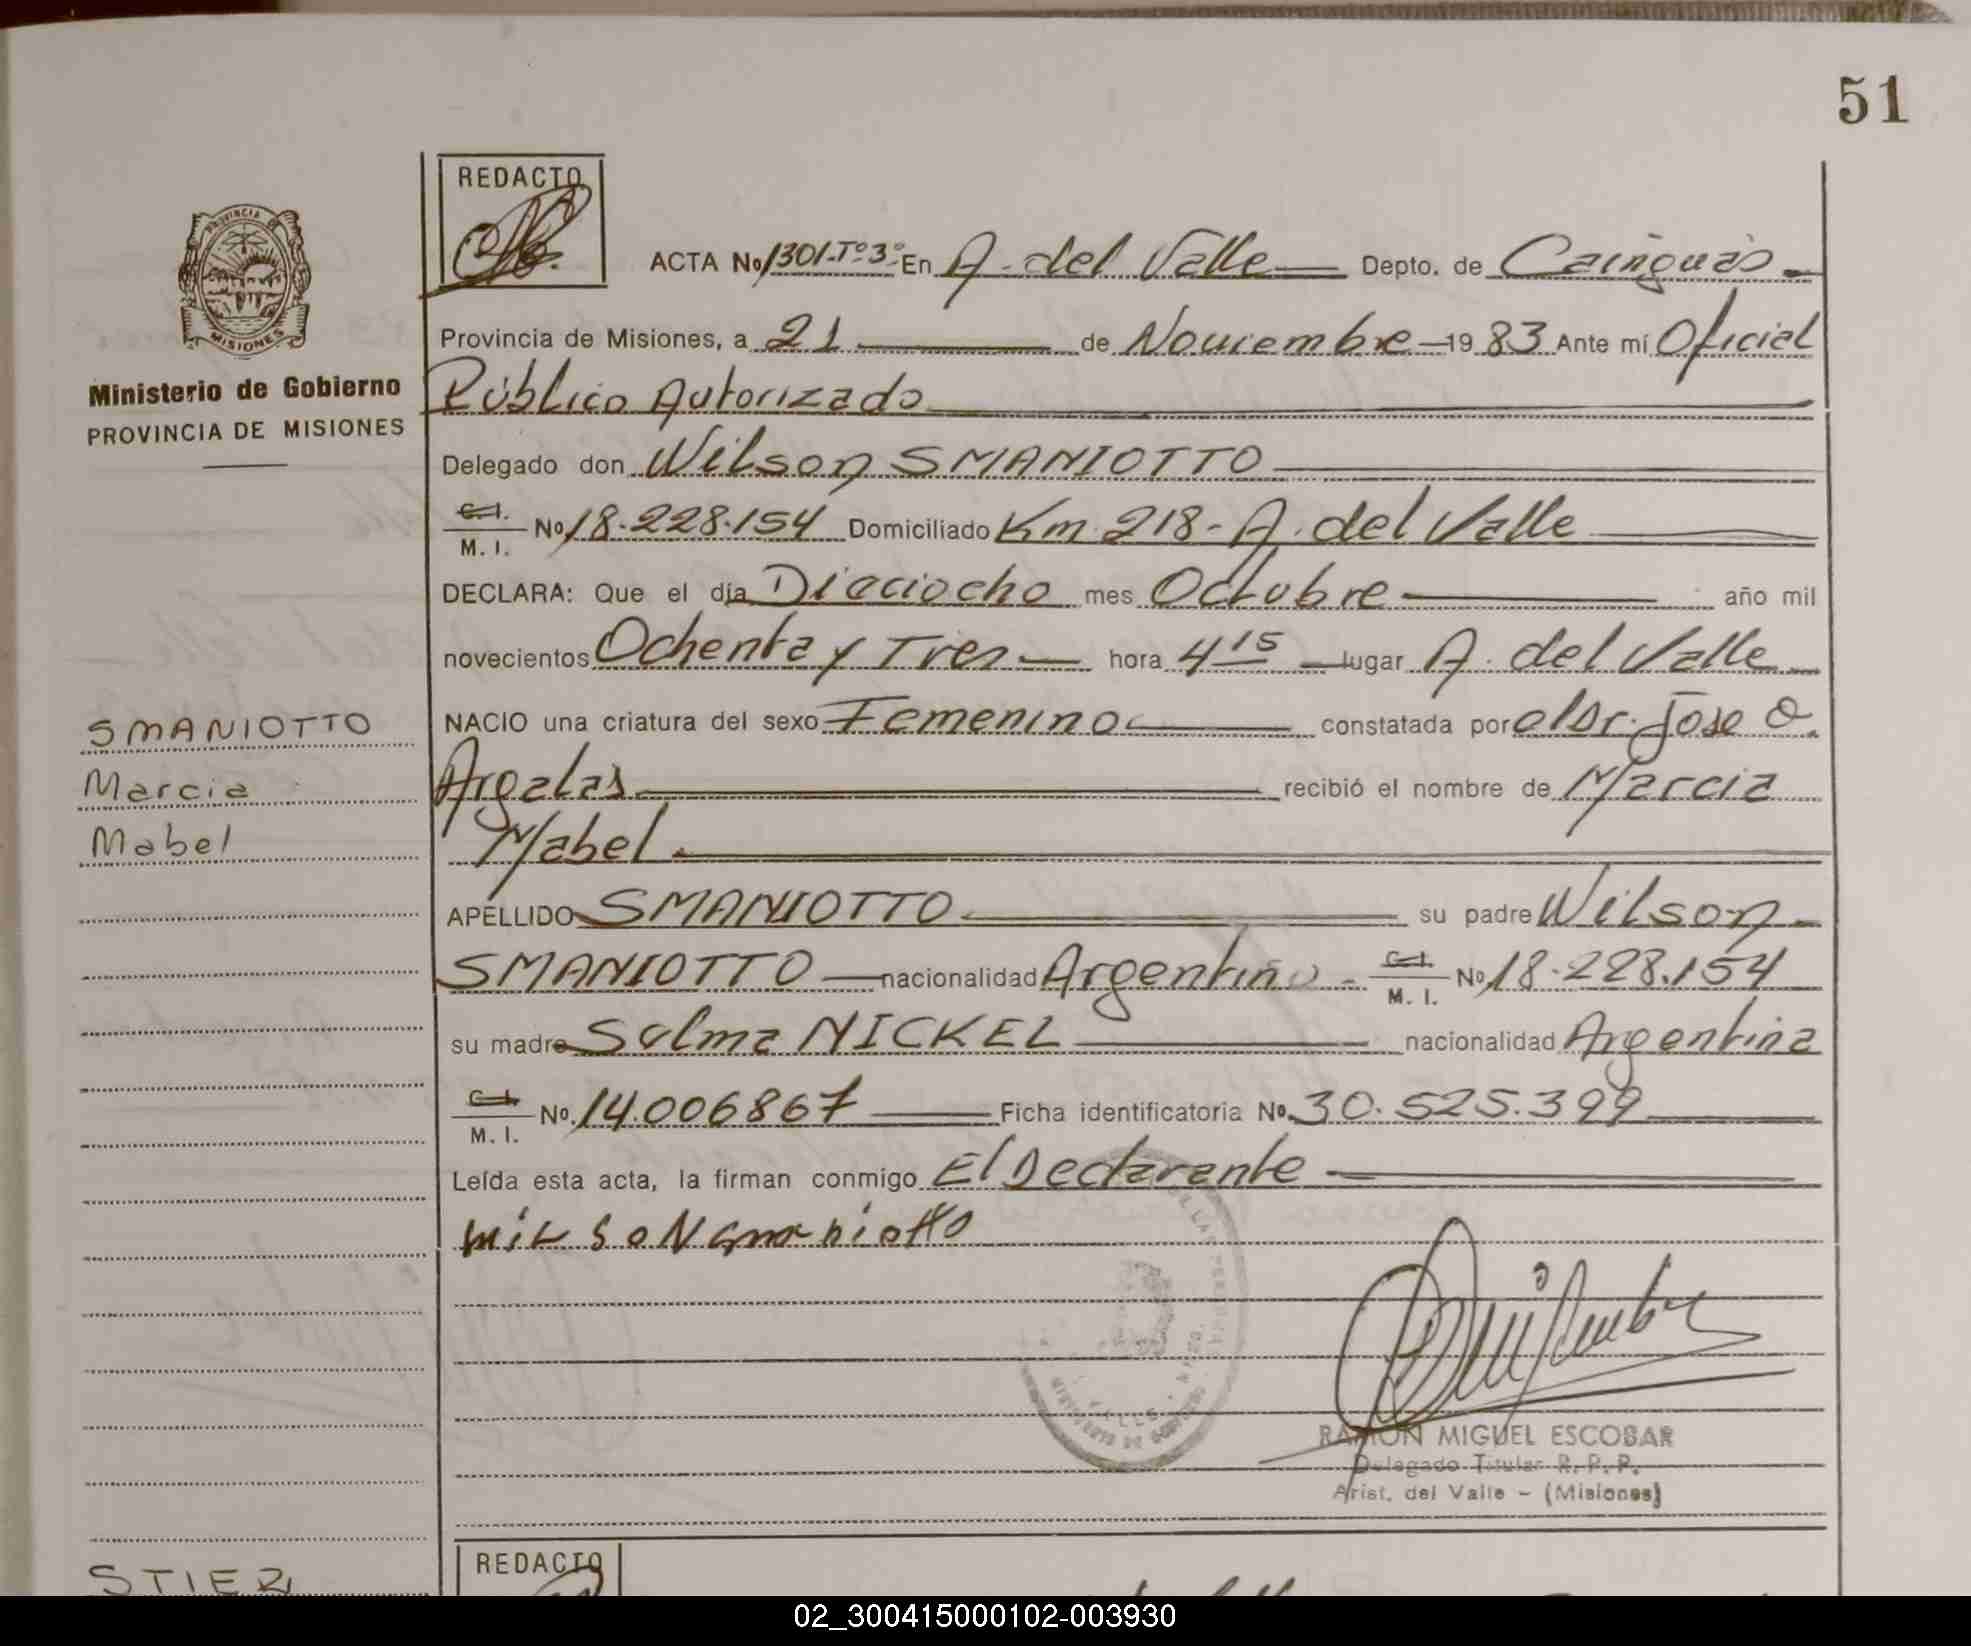 51
REDACTO
ACTA No 1301-Tº-3º- En A. del Valle Depto. de Cainguás
PROVINCIA
MISIONES
Provincia de Misiones, a 21 de Noviembre 1983 Ante mí Oficial
Ministerio de Gobierno
Público Autorizado
PROVINCIA DE MISIONES
Delegado don Wilson SMANIOTTO
C.I.
M. I. No 18.228.154 Domiciliado Km 218- A. del Valle
DECLARA: Que el día Dieciocho mes Octubre año mil
novecientos Ochenta y Tres hora 4 15 lugar A. del Valle
SMANIOTTO
NACIO una criatura del sexo Femenino constatada por el Dr. Jose O.
Marcia
Argalas recibió el nombre de Marcia
Mabel
Mabel
APELLIDO SMANIOTTO su padre Wilson
SMANIOTTO nacionalidad Argentino - C.I.
M. I. No 18.228.154
su madre Selma NICKEL nacionalidad Argentina
C.I.
M. I. No. 14.006867 Ficha identificatoria No. 30.525.399
Leída esta acta, la firman conmigo El Declarante
wilson smaniotto
RAMON MIGUEL ESCOBAR
Delegado Titular R. P. P.
Arist. del Valle - (Misiones)
REDACTO
STIER
02_300415000102-003930